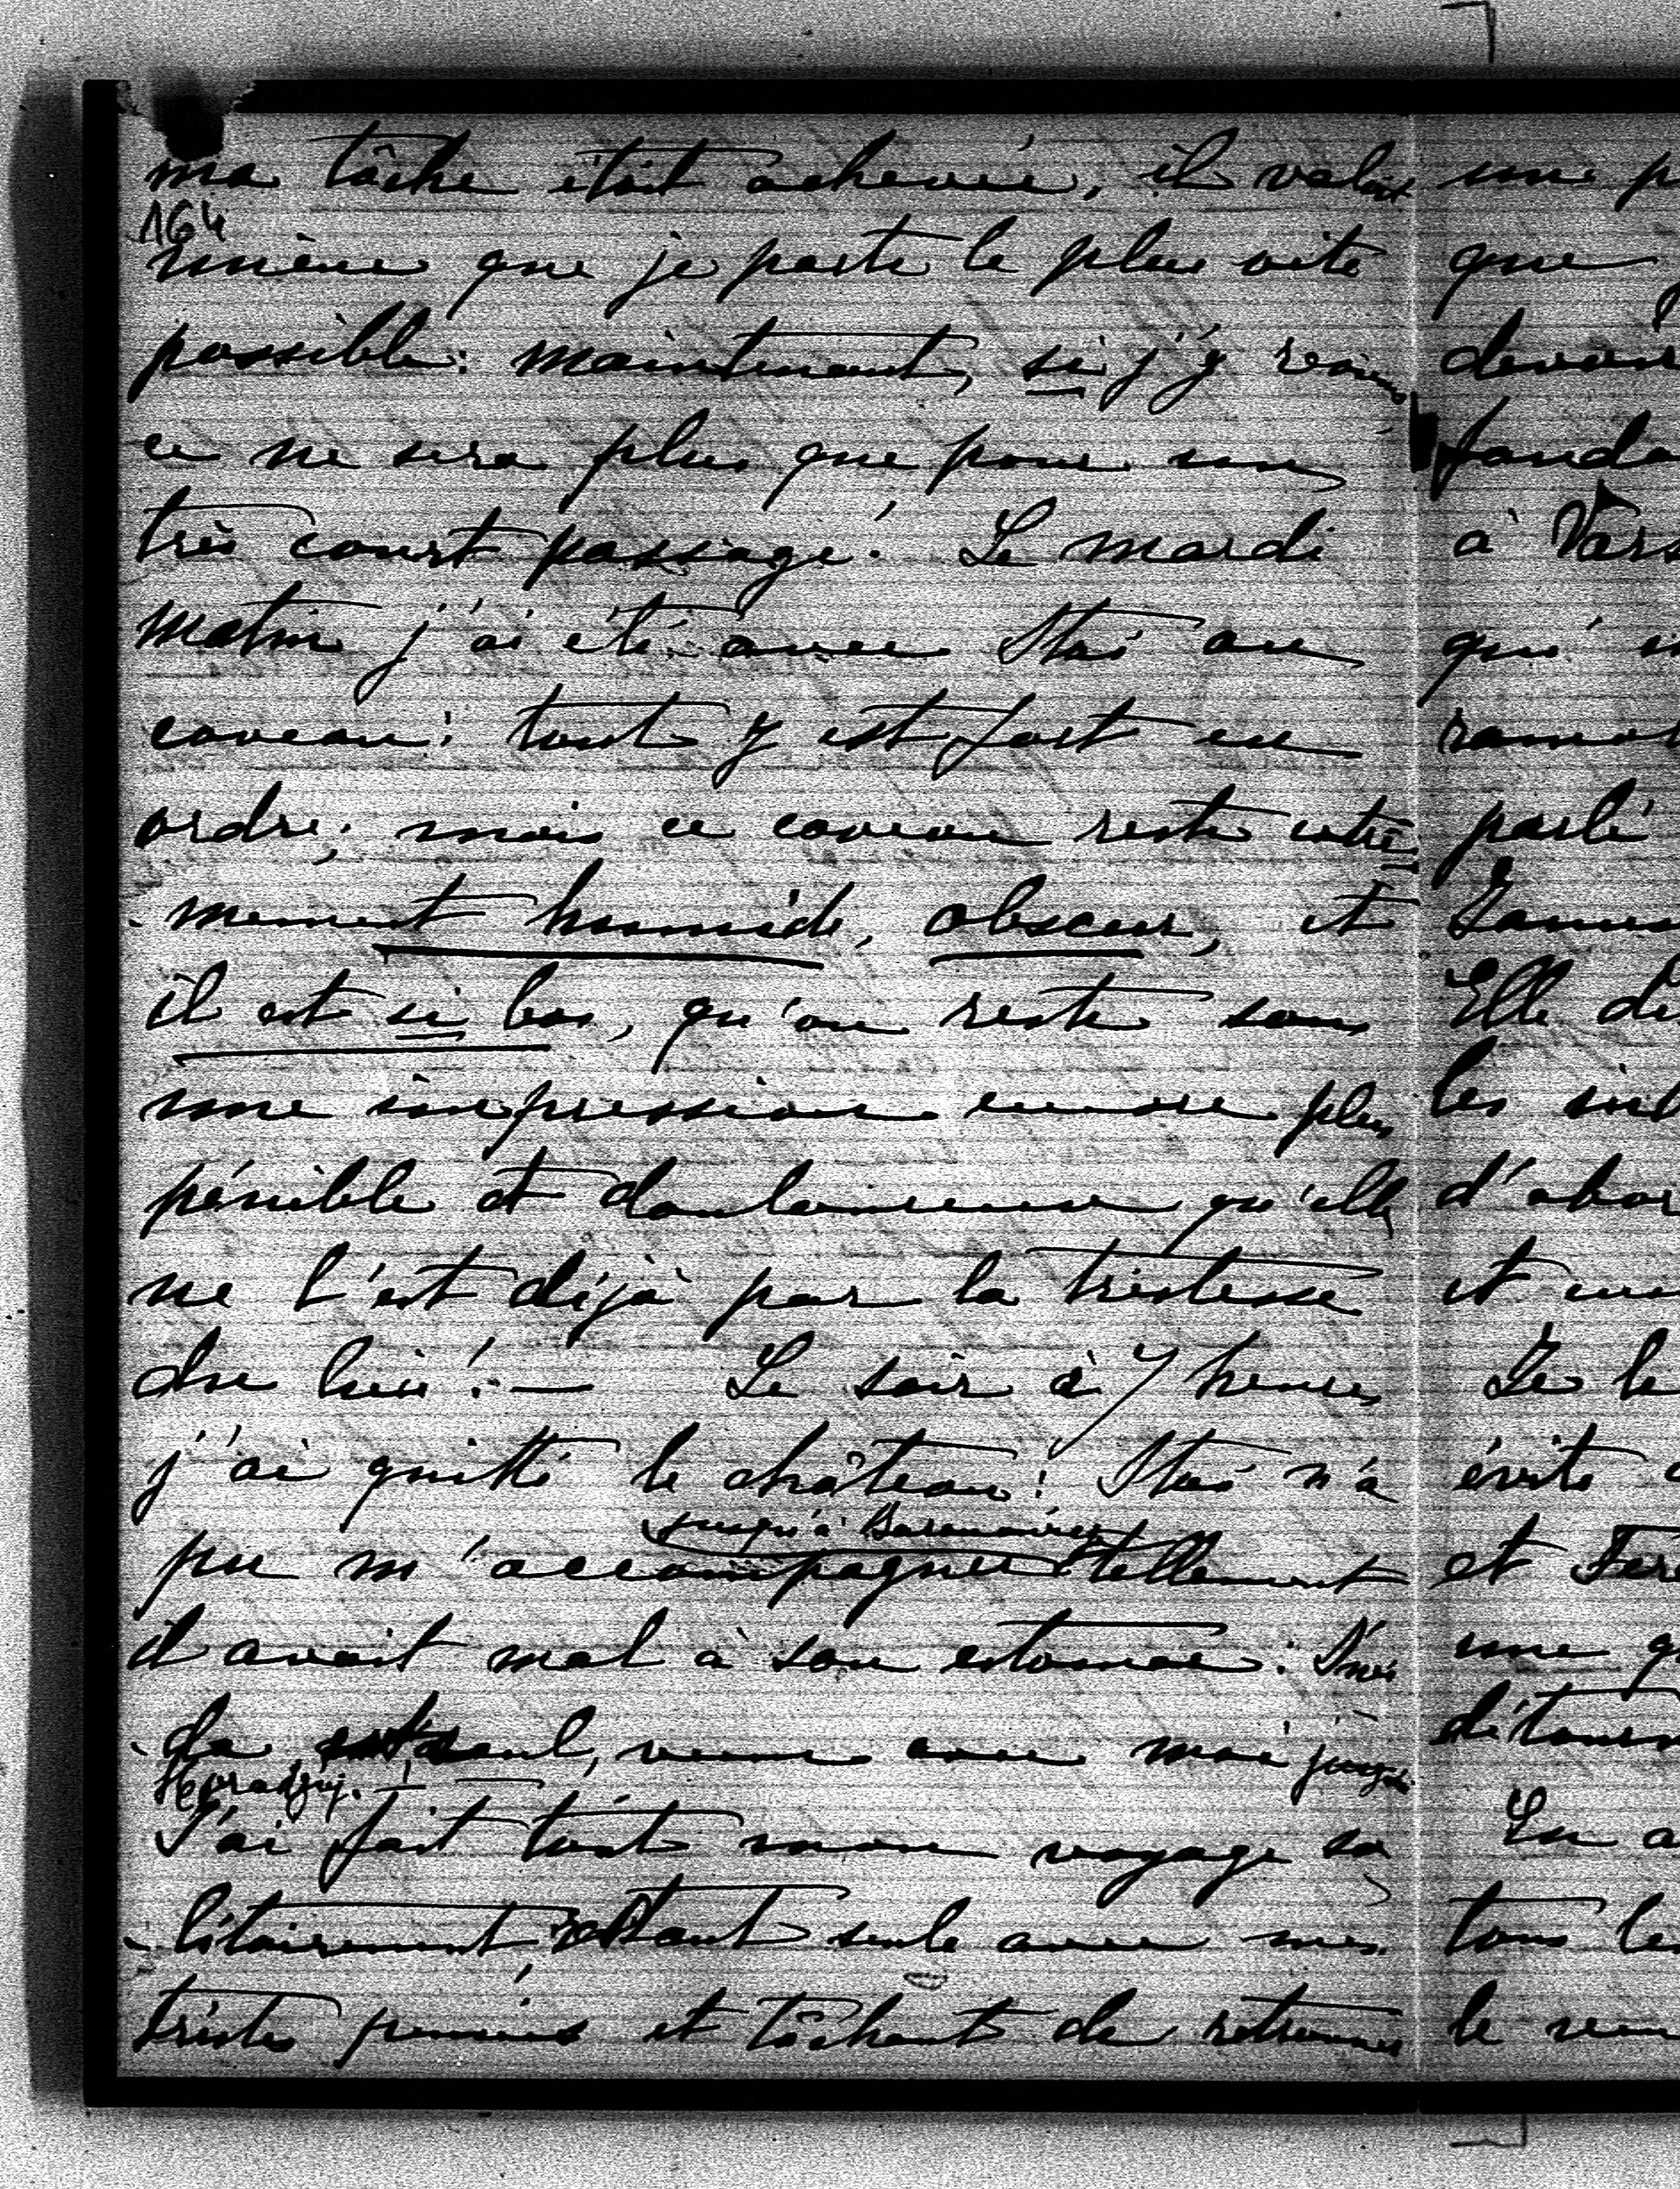 ma tâche était achevée, il valait
164
mieux que je parte le plus vite
possible: maintenant, si j'y reviens
ce ne sera plus que pour un
très court passage! Le mardi
matin j'ai été avec Staś au
caveau: tout y est fort en
ordre; mais ce caveau reste extrê-
-mement humide, obscur, et
il est si bas, qu'on reste sous
une impression encore plus
pénible et douloureuse qu'elle
ne l'est déjà par la tristesse
du lieu! — Le soir à 7 heures
j'ai quitté le château! Staś n'a
jusqu'à
pu m'accompagner tellement
il avait mal à son estomac:
seul, venu avec moi jusqu'à
J'ai fait tout mon voyage so
-litairement restant seule avec mes
tristes pensées et tâchant de retrouver
une
que
à
parlé
Elle
les
d'abor
et
Je le
évite
et
une
détourn
En a
tous le
le